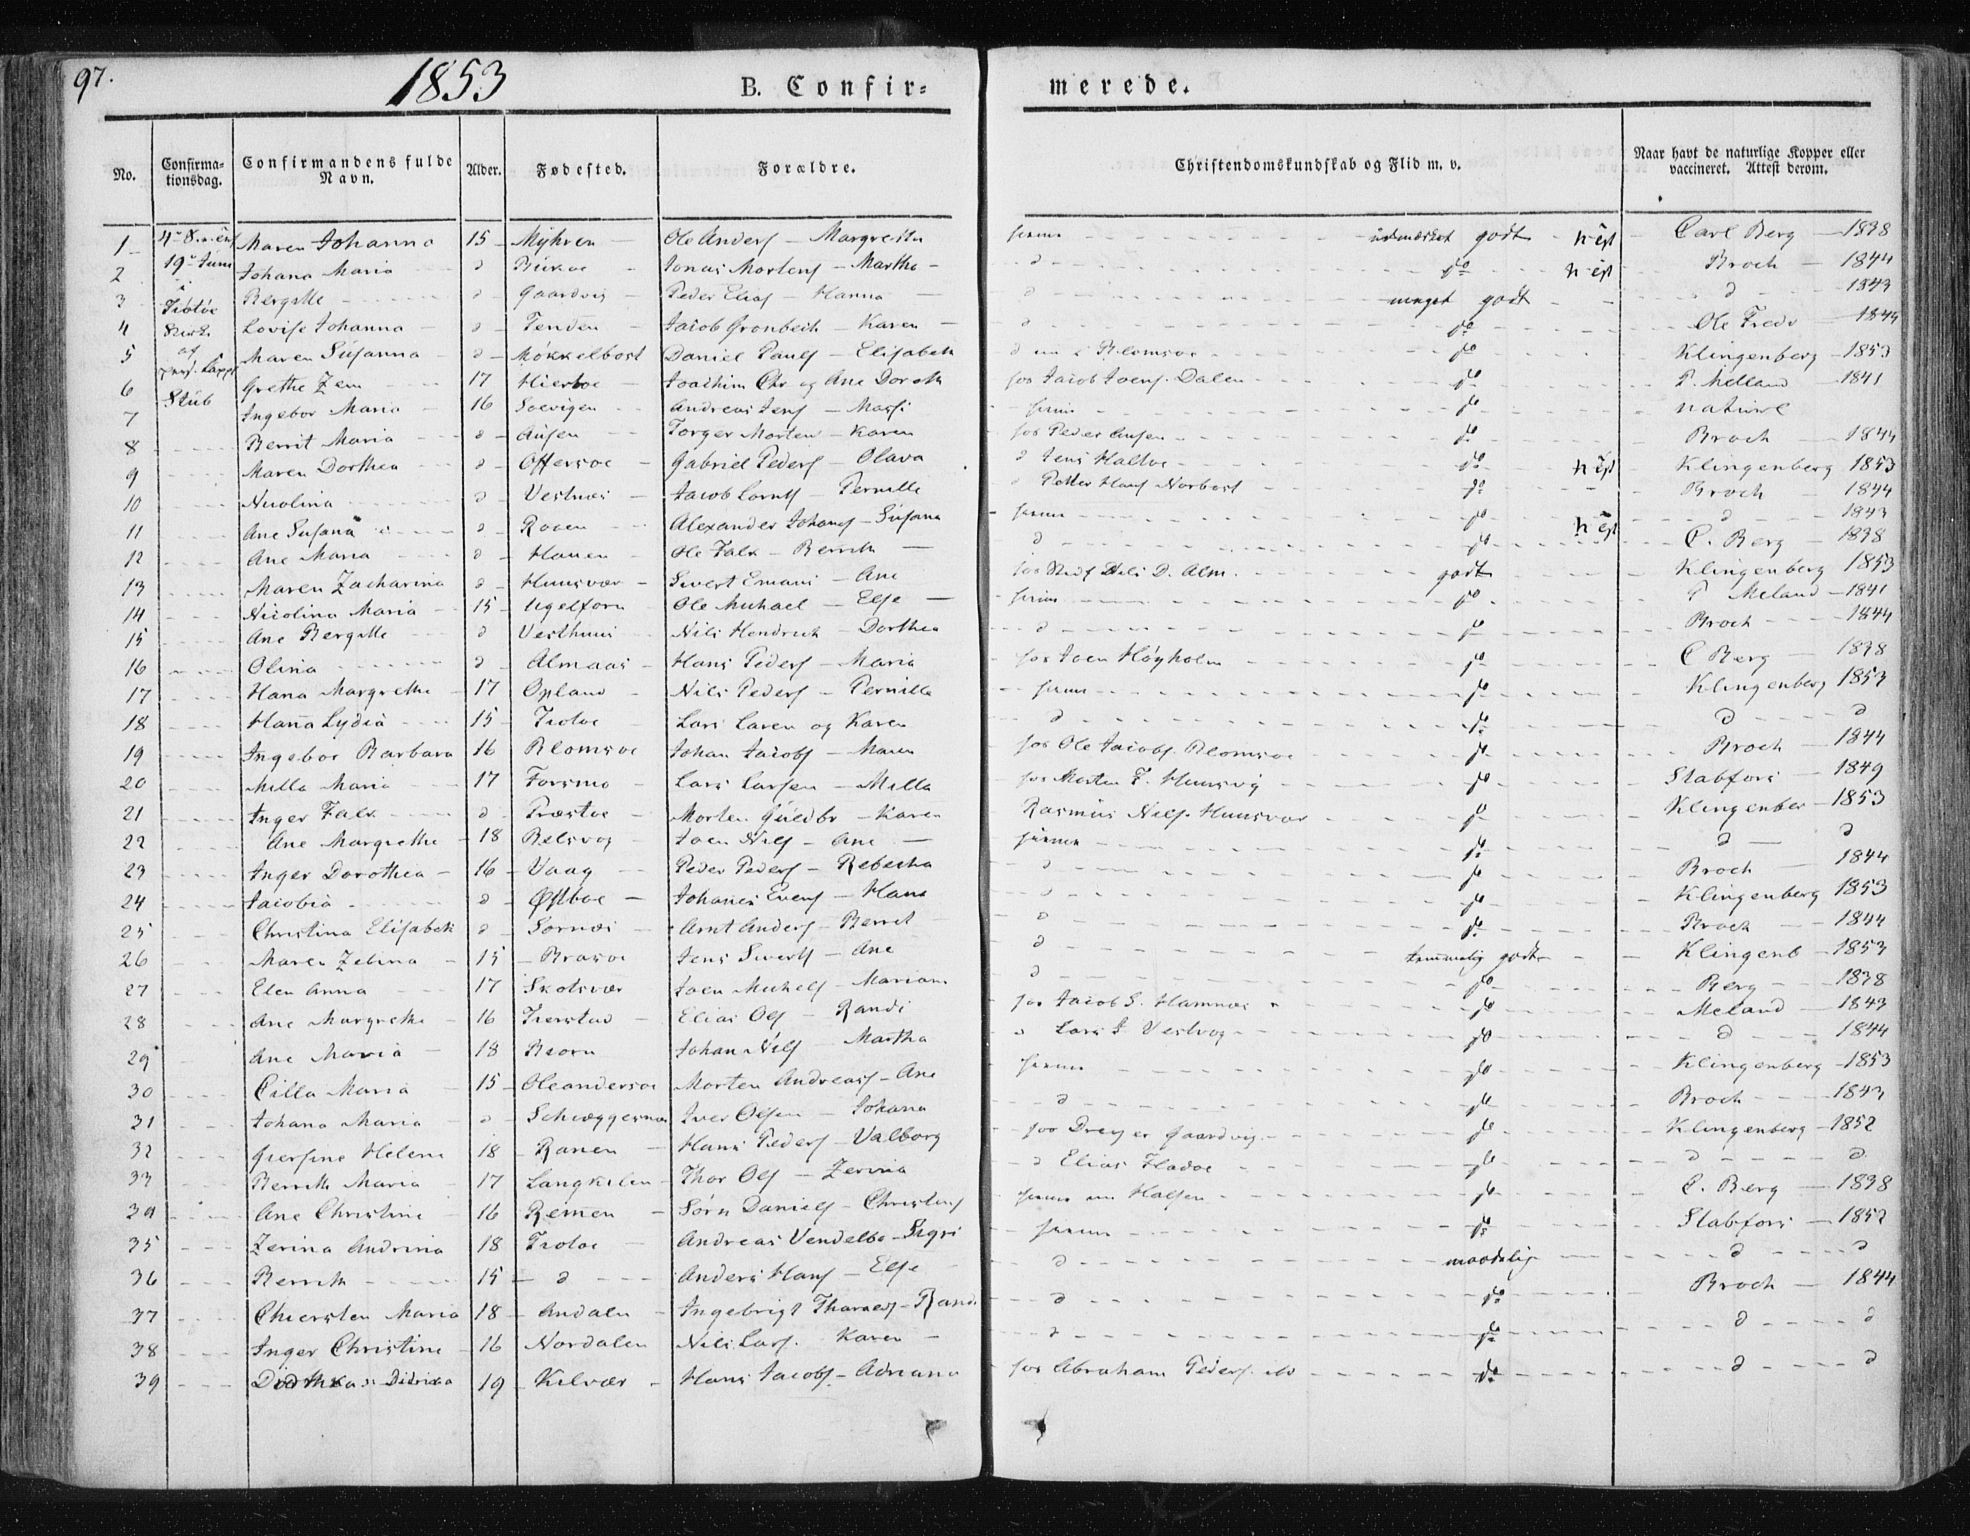 97. 1853 B. Confir= merede.
No. Confirma-tionsdag. Confirmandens fulde Navn. Alder. Fødested. Forældre. Christendomskundskab og Flid m. v. Naar havt de naturlige Kopper eller vaccineret. Attest derom.
1 Maren Johanna 15 Myhren Ole Anders Margrethe hjemme udmærket godt Carl Berg 1838
2 19de Juni Johana Maria d Jonas Mortens Martha d do Broch 1844
3 i Bergitte d Gaardvig Peder Elias Hanna d meget godt d 1843
4 Lovise Johanna d Tenden Jacob Grønbech Karen d do Ole Fredr 1844
5 af Maren Susanna d Møkkelbost Daniel Pauls Elisabeth d Blomsøe do Klingenberg 1853
6 Grethe Zem 17 Joachim Chr og Ane Doroth hos Jacob Joens. Dalen do P. Melland 1841
7 Stub Ingebor Maria 16 Soevigen Andreas Jens Massi hjemme do naturl
8 Berrit Maria d Ausen Torger Morten Karen hos Peder Ausen do Broch 1844
9 Maren Dorthea d Offersøe Gabriel Peders Olava d Jens Haltøe do Klingenberg 1853
10 Nicolina d Vestnæs Jacob Lornts Pernille d Petter Hans Norbost do Broch 1844
11 Ane Susana d Roøen Alexander Johans Susana hjemme do d 1843
12 Ane Maria d Haven Ole Falk Berrith d do C. Berg 1838
13 Maren Zacharina d Huusvær Sivert Emans Ane hos Nils D. Alm. godt Klingenberg 1853
14 Nicolina Maria 15 Ugelforn Ole Michael Else hjemme do P Meland 1841
15 Ane Bergitte d Vesthuus Nils Hendrich Dorthea d do Broch 1844
16 Olina d Almaas Hans Peders Maria hos Joen Høyholm do C Berg 1838
17 Hana Margrethe 17 Opland Nils Peders Pernille hjemme do Klingenberg 1853
18 Hana Lydia 15 Tiøtøe Lars Laren og Karen d do d d
19 Ingebor Barbara 16 Blomsøe Johan Jacobs Maren hos Ole Jacobs. Blomsøe do Broch 1844
20 Milla Maria 17 Forsmo Lars Larsen Milla hos Morten F. Huusvig do Stabfors 1849
21 Inger Falk d Præstøe Morten Guldbr Karen Rasmus Nils. Huusvær do Klingenber 1853
22 Ane Margrethe 18 Belsvog Joen Nils Ane hjemme do d d
23 Inger Dorothea 16 Vaag Peder Peders Rebecka d do Broch 1844
24 Jacobia d Østbøe Johanes Evens Hana d do Klingenberg 1853
25 Christina Elisabeth d Sørnæs Arnt Anders Berret d do Broch 1844
26 Maren Zelina 15 Brasøe Jens Siverts Ane d temmelig godt Klingenb 1853
27 Elen Anna 17 Skotsvær Joen Michels Mariam d do Berg 1838
28 Ane Margrethe 16 Tierstad Elias Ols Randi hos Jacob S. Hamnæs do Meland 1843
29 Ane Maria 18 Biørn Johan Nils Martha d Lars Vestvog do d 1844
30 Cilla Maria 15 Oleandersøe Morten Andreass Ane hjemme do Klingenberg 1853
31 Johana Maria d Schæggesnæs Iver Olsen Johana d do Broch 1843
32 Giersine Helene 18 Ranen Hans Peders Valborg hos Dreyer Gaardvig do Klingenberg 1852
33 Berrith Maria 17 Langkilen Thor Ols Zerina d Elias Fladøe do d d
34 Ane Christine 16 Remen Sørn Daniels Christens hjemme Halsen do C. Berg 1838
35 Zerina Andrina 18 Tiøtøe Andreas Vendelbo Sigri hjemme do Stabfors 1852
36 Berrith 15 d Anders Hans Else d maadelig d d
37 Chiersten Maria 18 Andalen Ingebrigt Tharaels Randi d do Broch 1844
38 Inger Christine 16 Nordalen Nils Lars. Karen d do d d
39 Didrica 19 Kilvær Hans Jacobs Adriana hos Abraham Peders. do d d